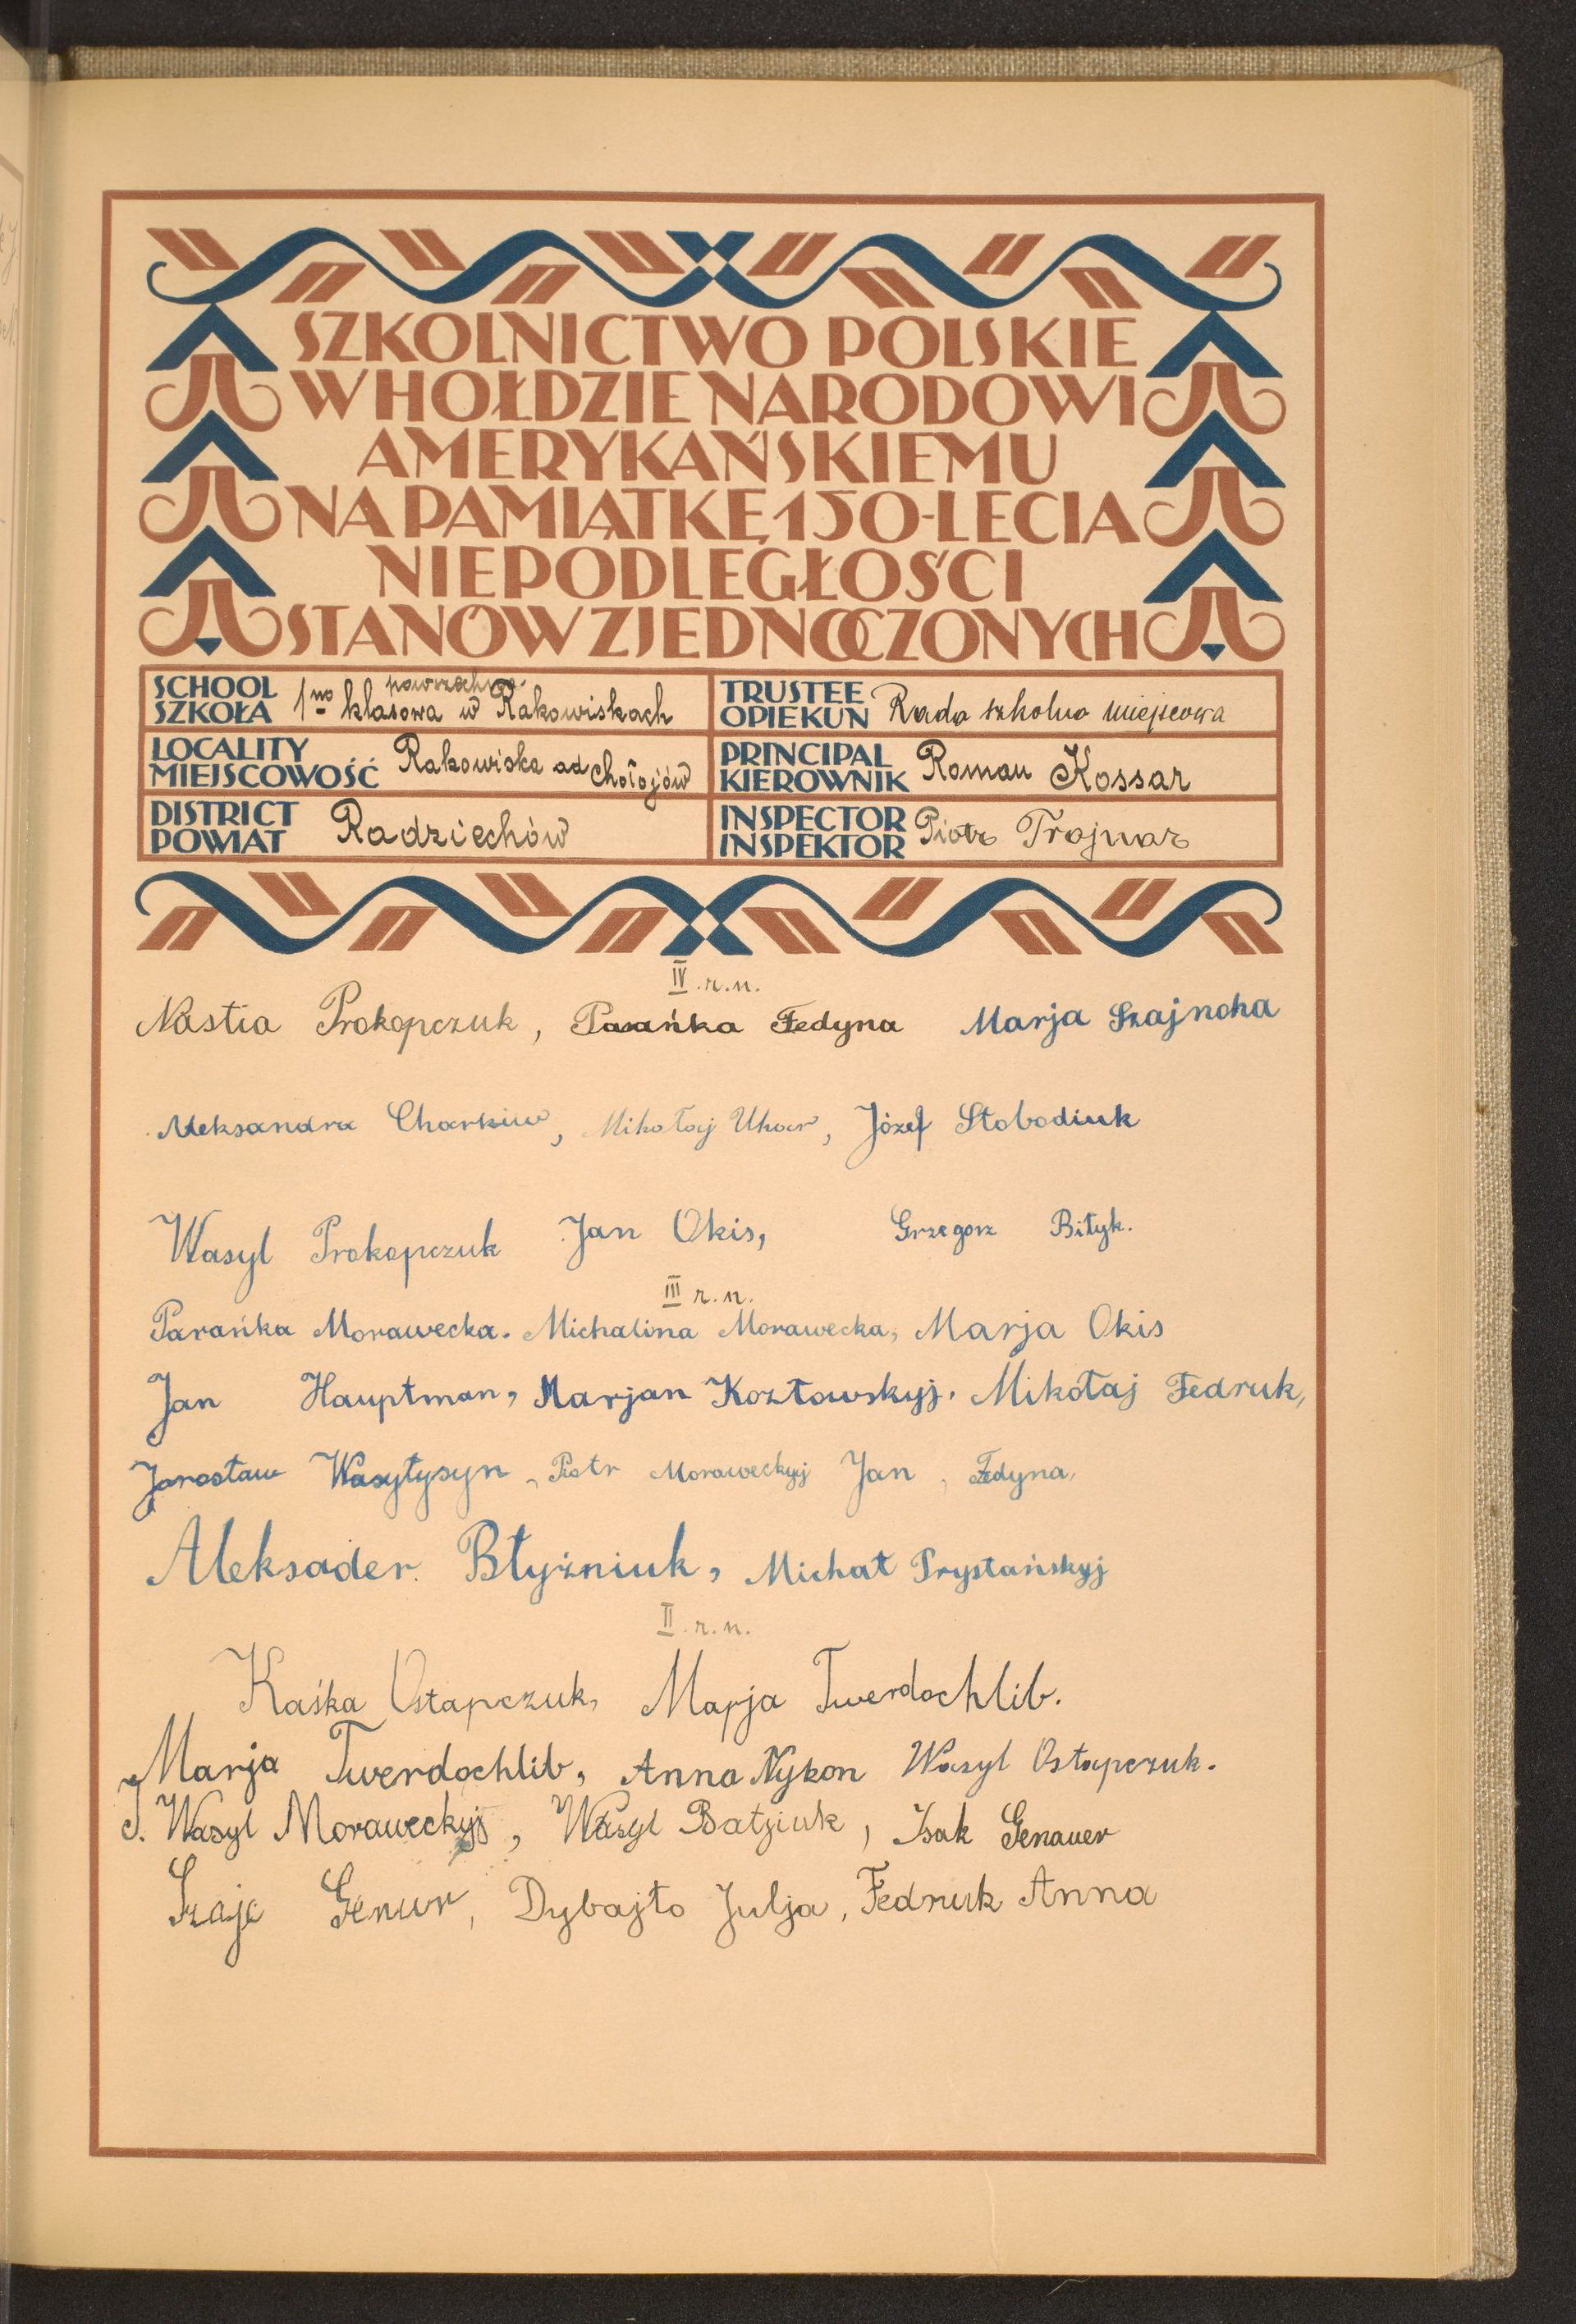 SZKOLNICTWO POLSKIE
W HOŁDZIE NARODOWI
AMERYKAŃSKIEMU
NA PAMIĄTKĘ 150-LECIA
NIEPODLEGŁOŚCI
STANÓW ZJEDNOCZONYCH
SCHOOL SZKOŁA 1 no klasowa powszechna w Rakowiskach
TRUSTEE OPIEKUN Rada szkolna miejscowa
LOCALITY MIEJSCOWOŚĆ Rakowiska ad Chołojów
PRINCIPAL KIEROWNIK Roman Kossar
DISTRICT POWIAT Radziechów
INSPECTOR INSPEKTOR Piotr Trojnar
IV. r. n.
Nastia Prokopczuk, Parańka Fedyna Marja Szajnoha
Aleksandra Charkiw, Mikołaj Uhar, Józef Słobodiuk
Wasyl Prokopczuk Jan Okis, Grzegorz Biłyk.
III r. n.
Parańka Morawecka. Michalina Morawecka, Marja Okis
Jan Hauptman, Marjan Kozłowskyj, Mikołaj Fedruk,
Jarosław Wasyłysyn, Piotr Moraweckyj Jan, Fedyna,
Aleksader. Błyźniuk, Michał Prystańskyj
II. r. n.
Kaśka Ostapczuk, Marja Twerdochlib.
Marja Twerdochlib, Anna Nykon Wasyl Ostapczuk.
J. Wasyl Moraweckyj, Wasyl Batziuk, Isak Genauer
Szaje Genur, Dybajło Julja, Fedruk Anna